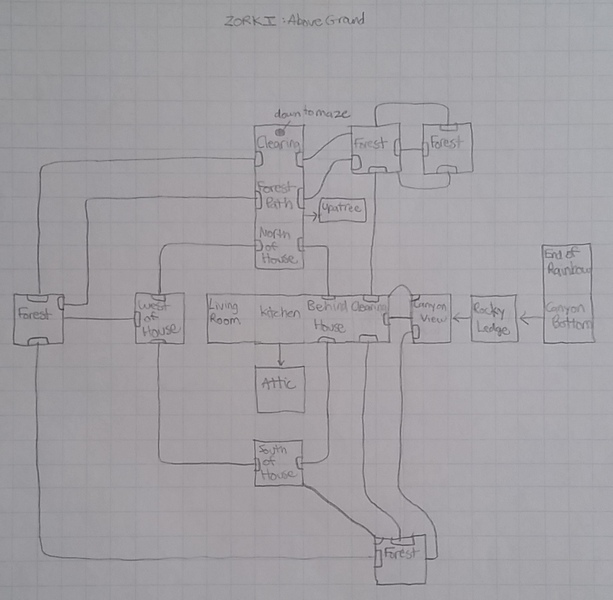 ZORK I : Above Ground
down to maze
Clearing
Forest
Forest
Forest
Path
up a tree
North
of
House
End of
Rainbow
Forest
West
of
House
Living
Room
Kitchen
Behind
House
Clearing
Canyon
View
Rocky
Ledge
Canyon
Bottom
Attic
South
of
House
Forest